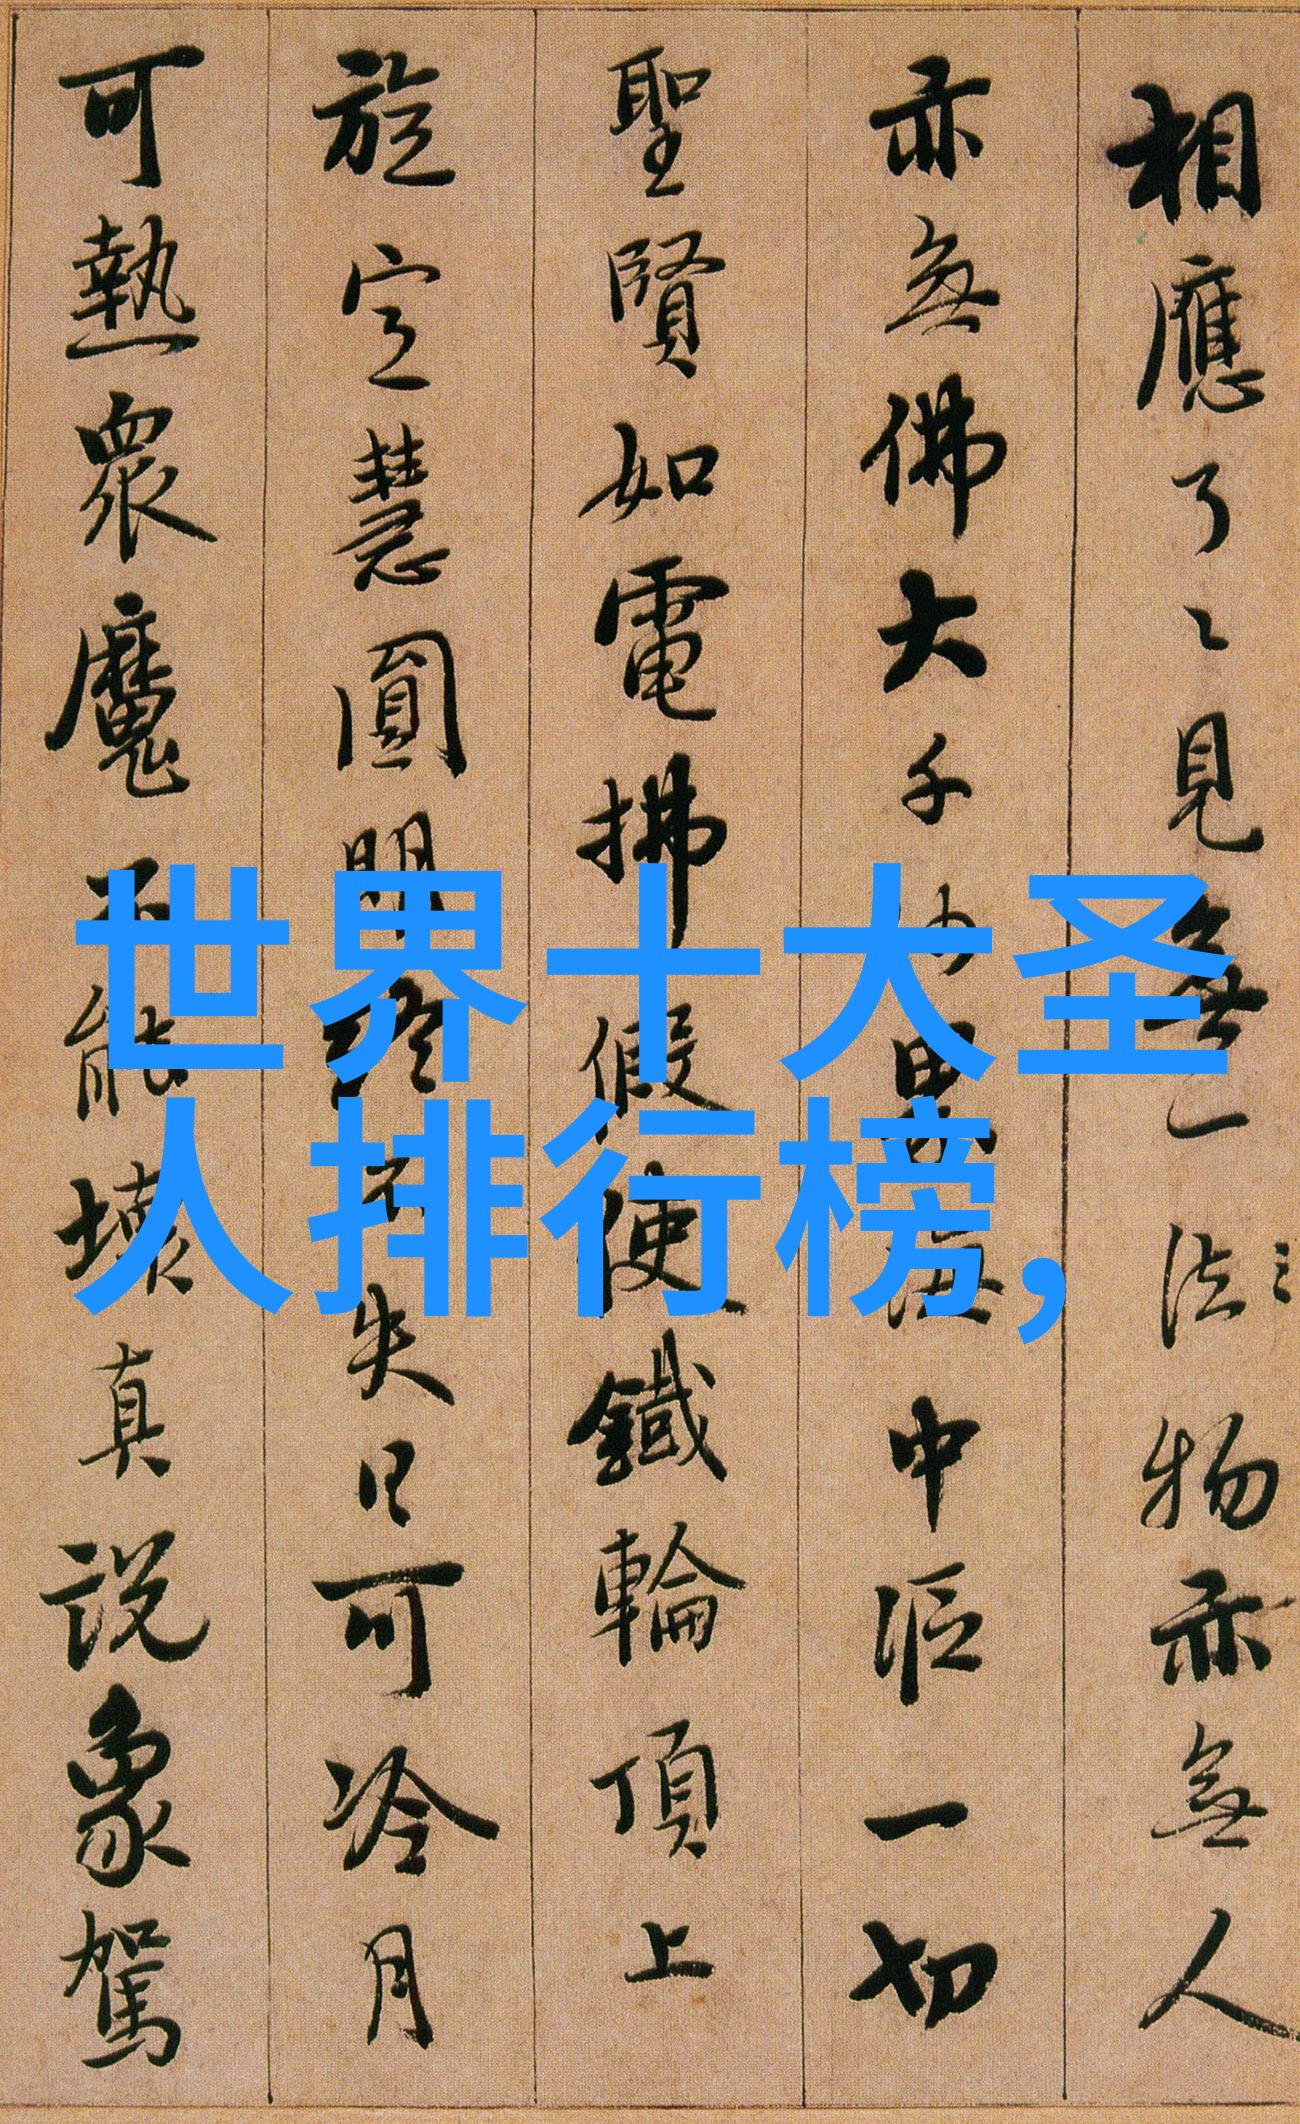 相應了〻見無一法物亦無人
亦無佛大千沙界海中漚一切
聖賢如電拂假使鐵輪頂上
旋定慧圓明終不失日可冷月
可熱衆魔不能壞真說象駕
世界十大圣
人排行榜,